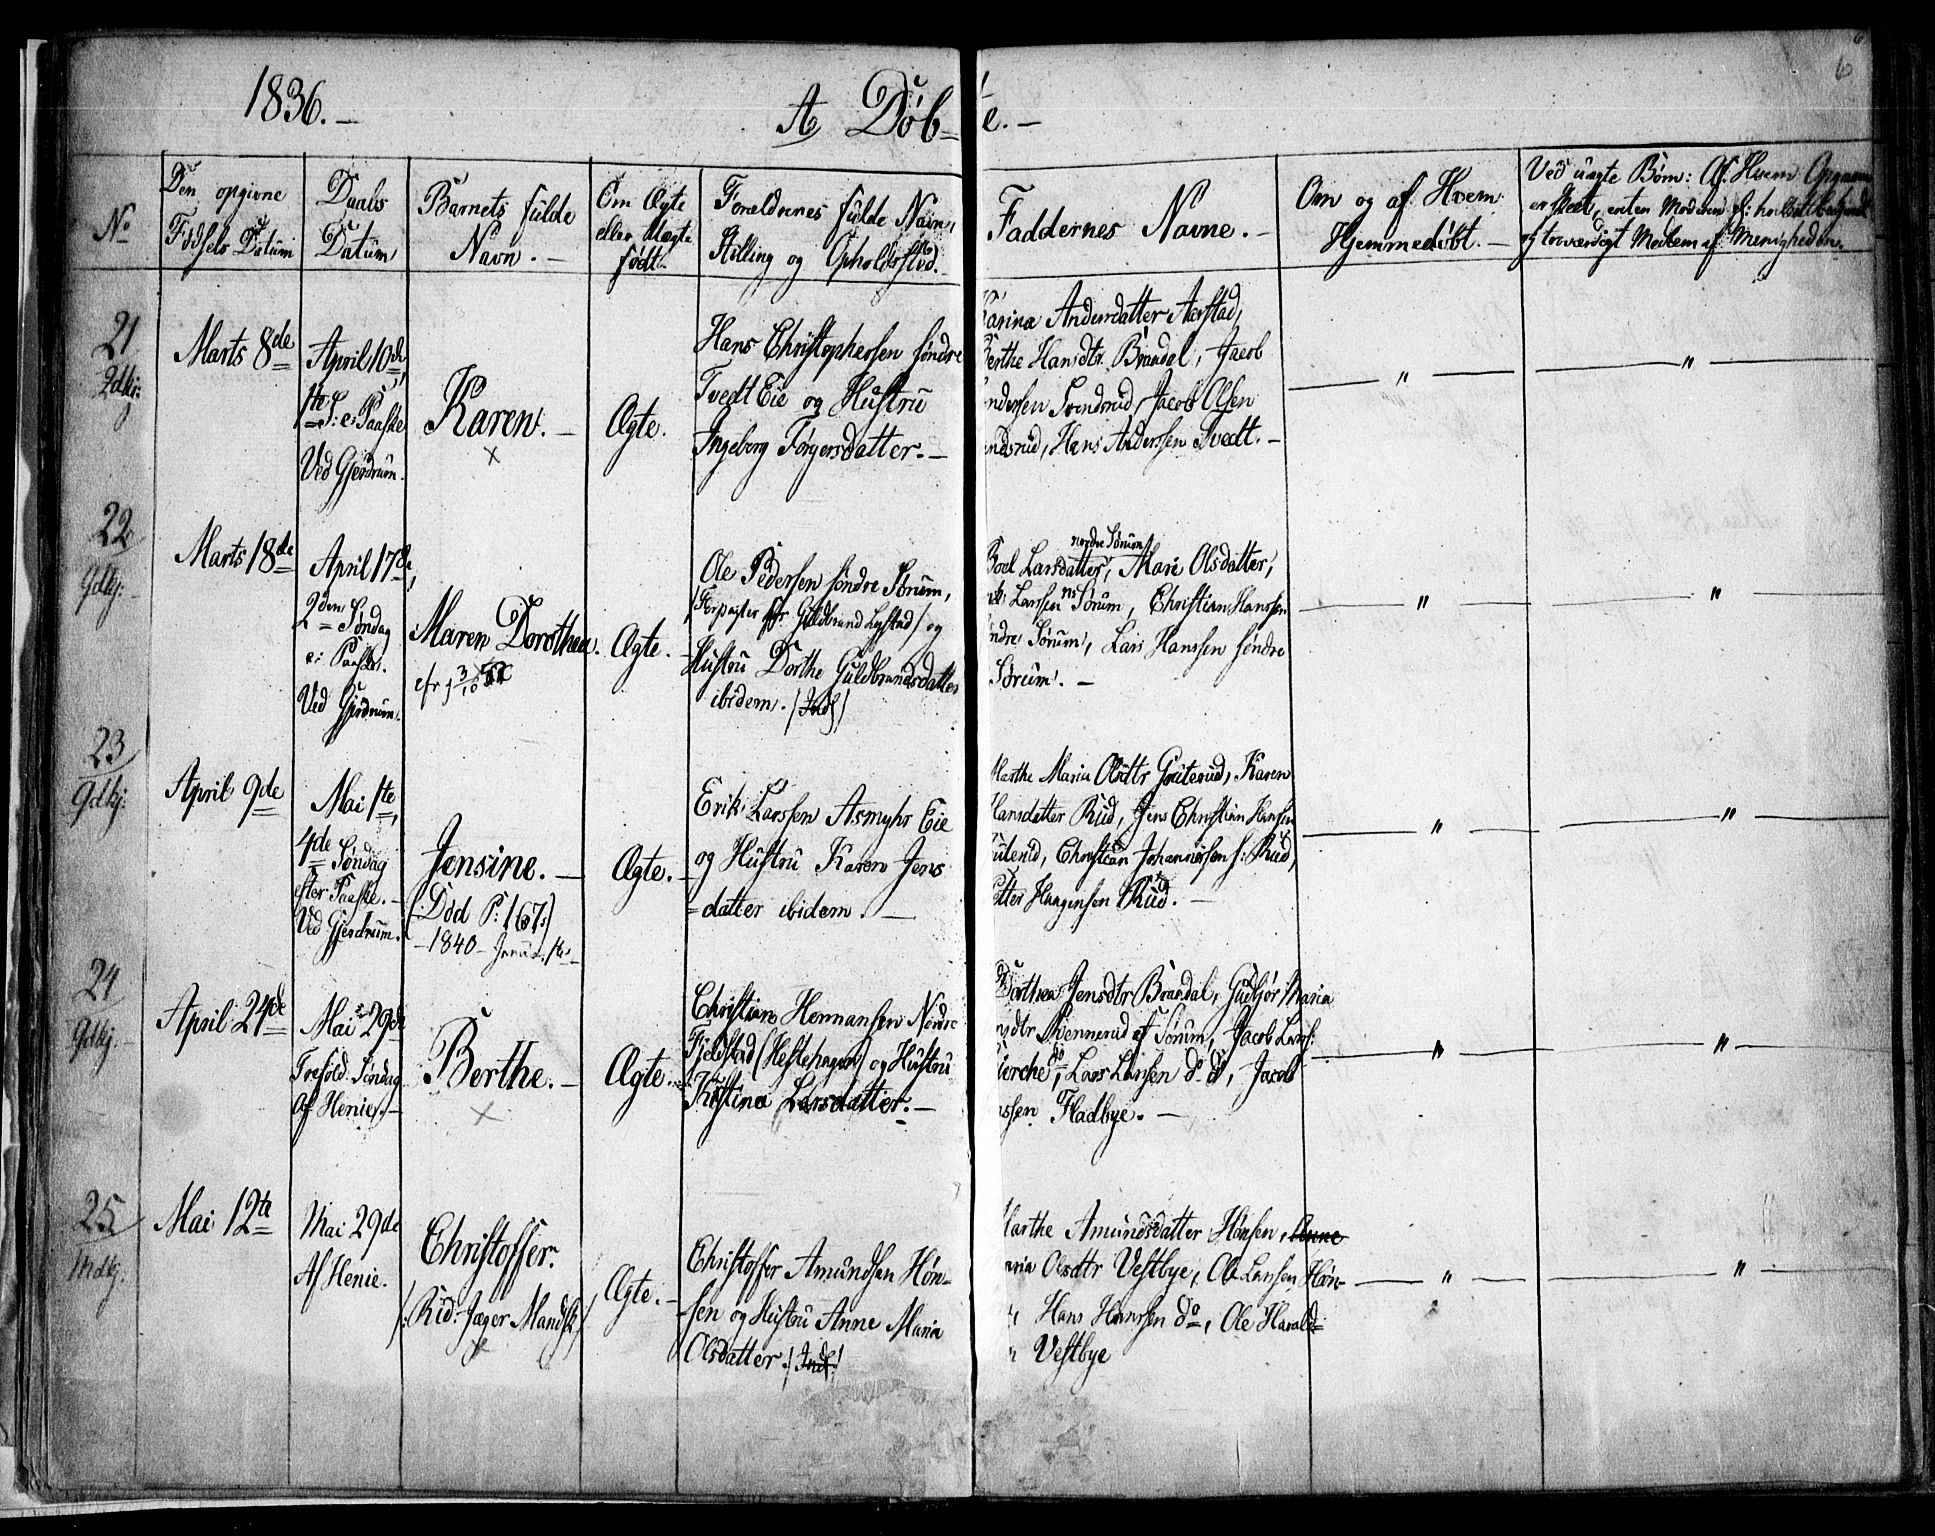 1836. –
A Døb–
e. –
6
No
Den opgivne
Fødsels Datum
Daabs
Datum
Barnets fulde
Navn. –
Om Ægte
eller Uægte
født.
Forældrenes fulde Navn,
Stilling og Opholdssted.
Faddernes Navne. –
Om og af Hvem
Hjemmedøbt. –
Ved uægte Børn: Af Hvem
er skeet, enten Moderen el:
og troværdigt Medlem af Menigheden.
21
Gdkj:
Marts 8de
April 10de,
1te S: e: Paaske
Ved Gjerdrum.
Karen. –
x
Ægte.
Hans Christophersen søndre
Tvedt Eie og Hustru
Ingeborg Torgersdatter. –
Karina Andersdatter Aarstad,
Berthe Hansdtr. Brandal, Jacob
Andersen Svendsrud, Jacob Olsen
endsrud, Hans Anderssen Tvedt. –
"
"
22
Gdkj:
Marts 18de
April 17de,
2den Søndag
e: Paaske.
Ved Gjerdrum.
Maren Dorothea.
cfr
Ægte. –
Ole Pedersen søndre Sørum,
/Forpagter for Guldbrand Lystad/ og
Hustru Dorthe Guldbrandsdatter
ibidem. /Inds/
nordre Sørum
Boel Larsdatter, Mari Olsdatter,
Larssen ns Sørum, Christian Hanssen
søndre Sørum, Lars Hanssen søndre
Sørum. –
"
"
23
Gdkj:
April 9de
Mai 1te,
4de Søndag
efter Paaske. –
Ved Gjerdrum.
Jensine. –
(Død P: 167.)
– 1840 –
Ægte. –
Erik Larssen Asmyhr Eie
og Hustru Karen Jens
=datter ibidem. –
Marthe Maria Olsdtr Gruterud, Karen
Hansdatter Rud, Jens Christian Hansen
Gruterud, Christian Johannesen s: Rud,
Petter Haagensen Rud. –
"
"
24
Gdkj:
April 24de
Mai 29de
Trefold. Søndag
Af Henie. –
Berthe. –
x
Ægte.
Christian Hermansen Nordre
Fjeldstad (Hestehagen) og Hustru
Kristina Larsdatter. –
Dorthea Jensdtr Brandal, Gudjør Maria
nsdtr Svennerud af Sørum, Jacob Lars:
Kierche, Lars Larsen do do, Jacob
nssen Fladbye. –
"
"
25
Mdkj:
Mai 12te
Mai 29de
Af Henie.
Christoffer.
/: Rid: Jæger Mandsk /
x
Ægte. –
Christoffer Amundsen Høn-
sen og Hustru Anne Maria
Olsdatter. /Inds/
Marthe Amundsdatter Hønsen, Anne
Maria Olsdtr Vestbye, Ole Larsen Høn-
Hans Hanssen do, Ole Harald=
n Vestbye
"
"